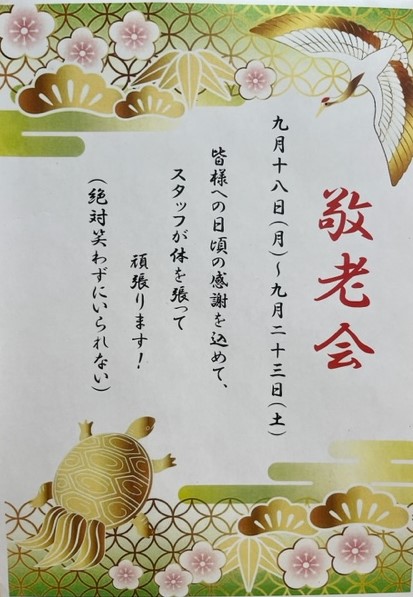 敬老会
九月十八日(月)～九月二十三日(土)
皆様への日頃の感謝を込めて、
スタッフが体を張って
頑張ります！
(絶対笑わずにいられない)